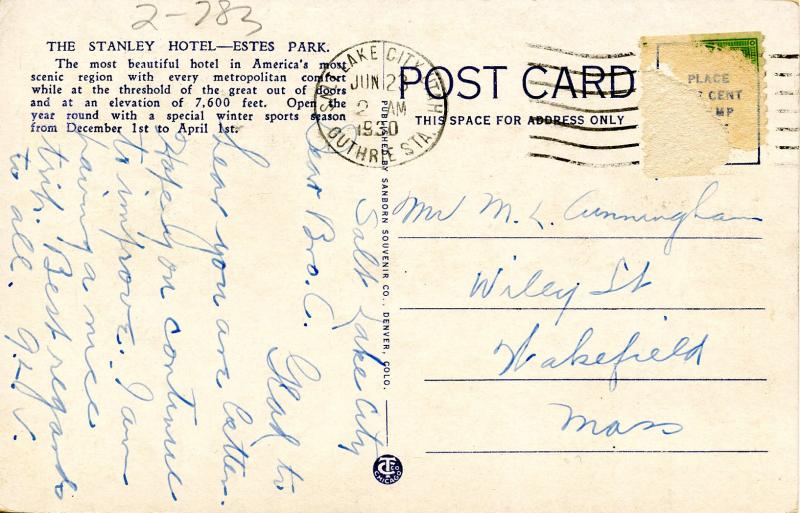 2-783
THE STANLEY HOTEL—ESTES PARK.
The most beautiful hotel in America's most
scenic region with every metropolitan comfort
while at the threshold of the great out of doors
and at an elevation of 7,600 feet. Open the
year round with a special winter sports season
from December 1st to April 1st.
SALT LAKE CITY, UTAH
JUN 23
2 AM
1930
GUTHRIE STA.
POST CARD
THIS SPACE FOR ADDRESS ONLY
PLACE
CENT
MP
PUBLISHED BY SANBORN SOUVENIR CO., DENVER, COLO.
CT CO
CHICAGO
Salt Lake City
Dear Bro. C. Glad to
hear you are better.
Hope you continue
to improve. I am
having a nice
trip. Best regards
to all.
Mr M. L. Cunningham
Wiley St
Wakefield
Mass